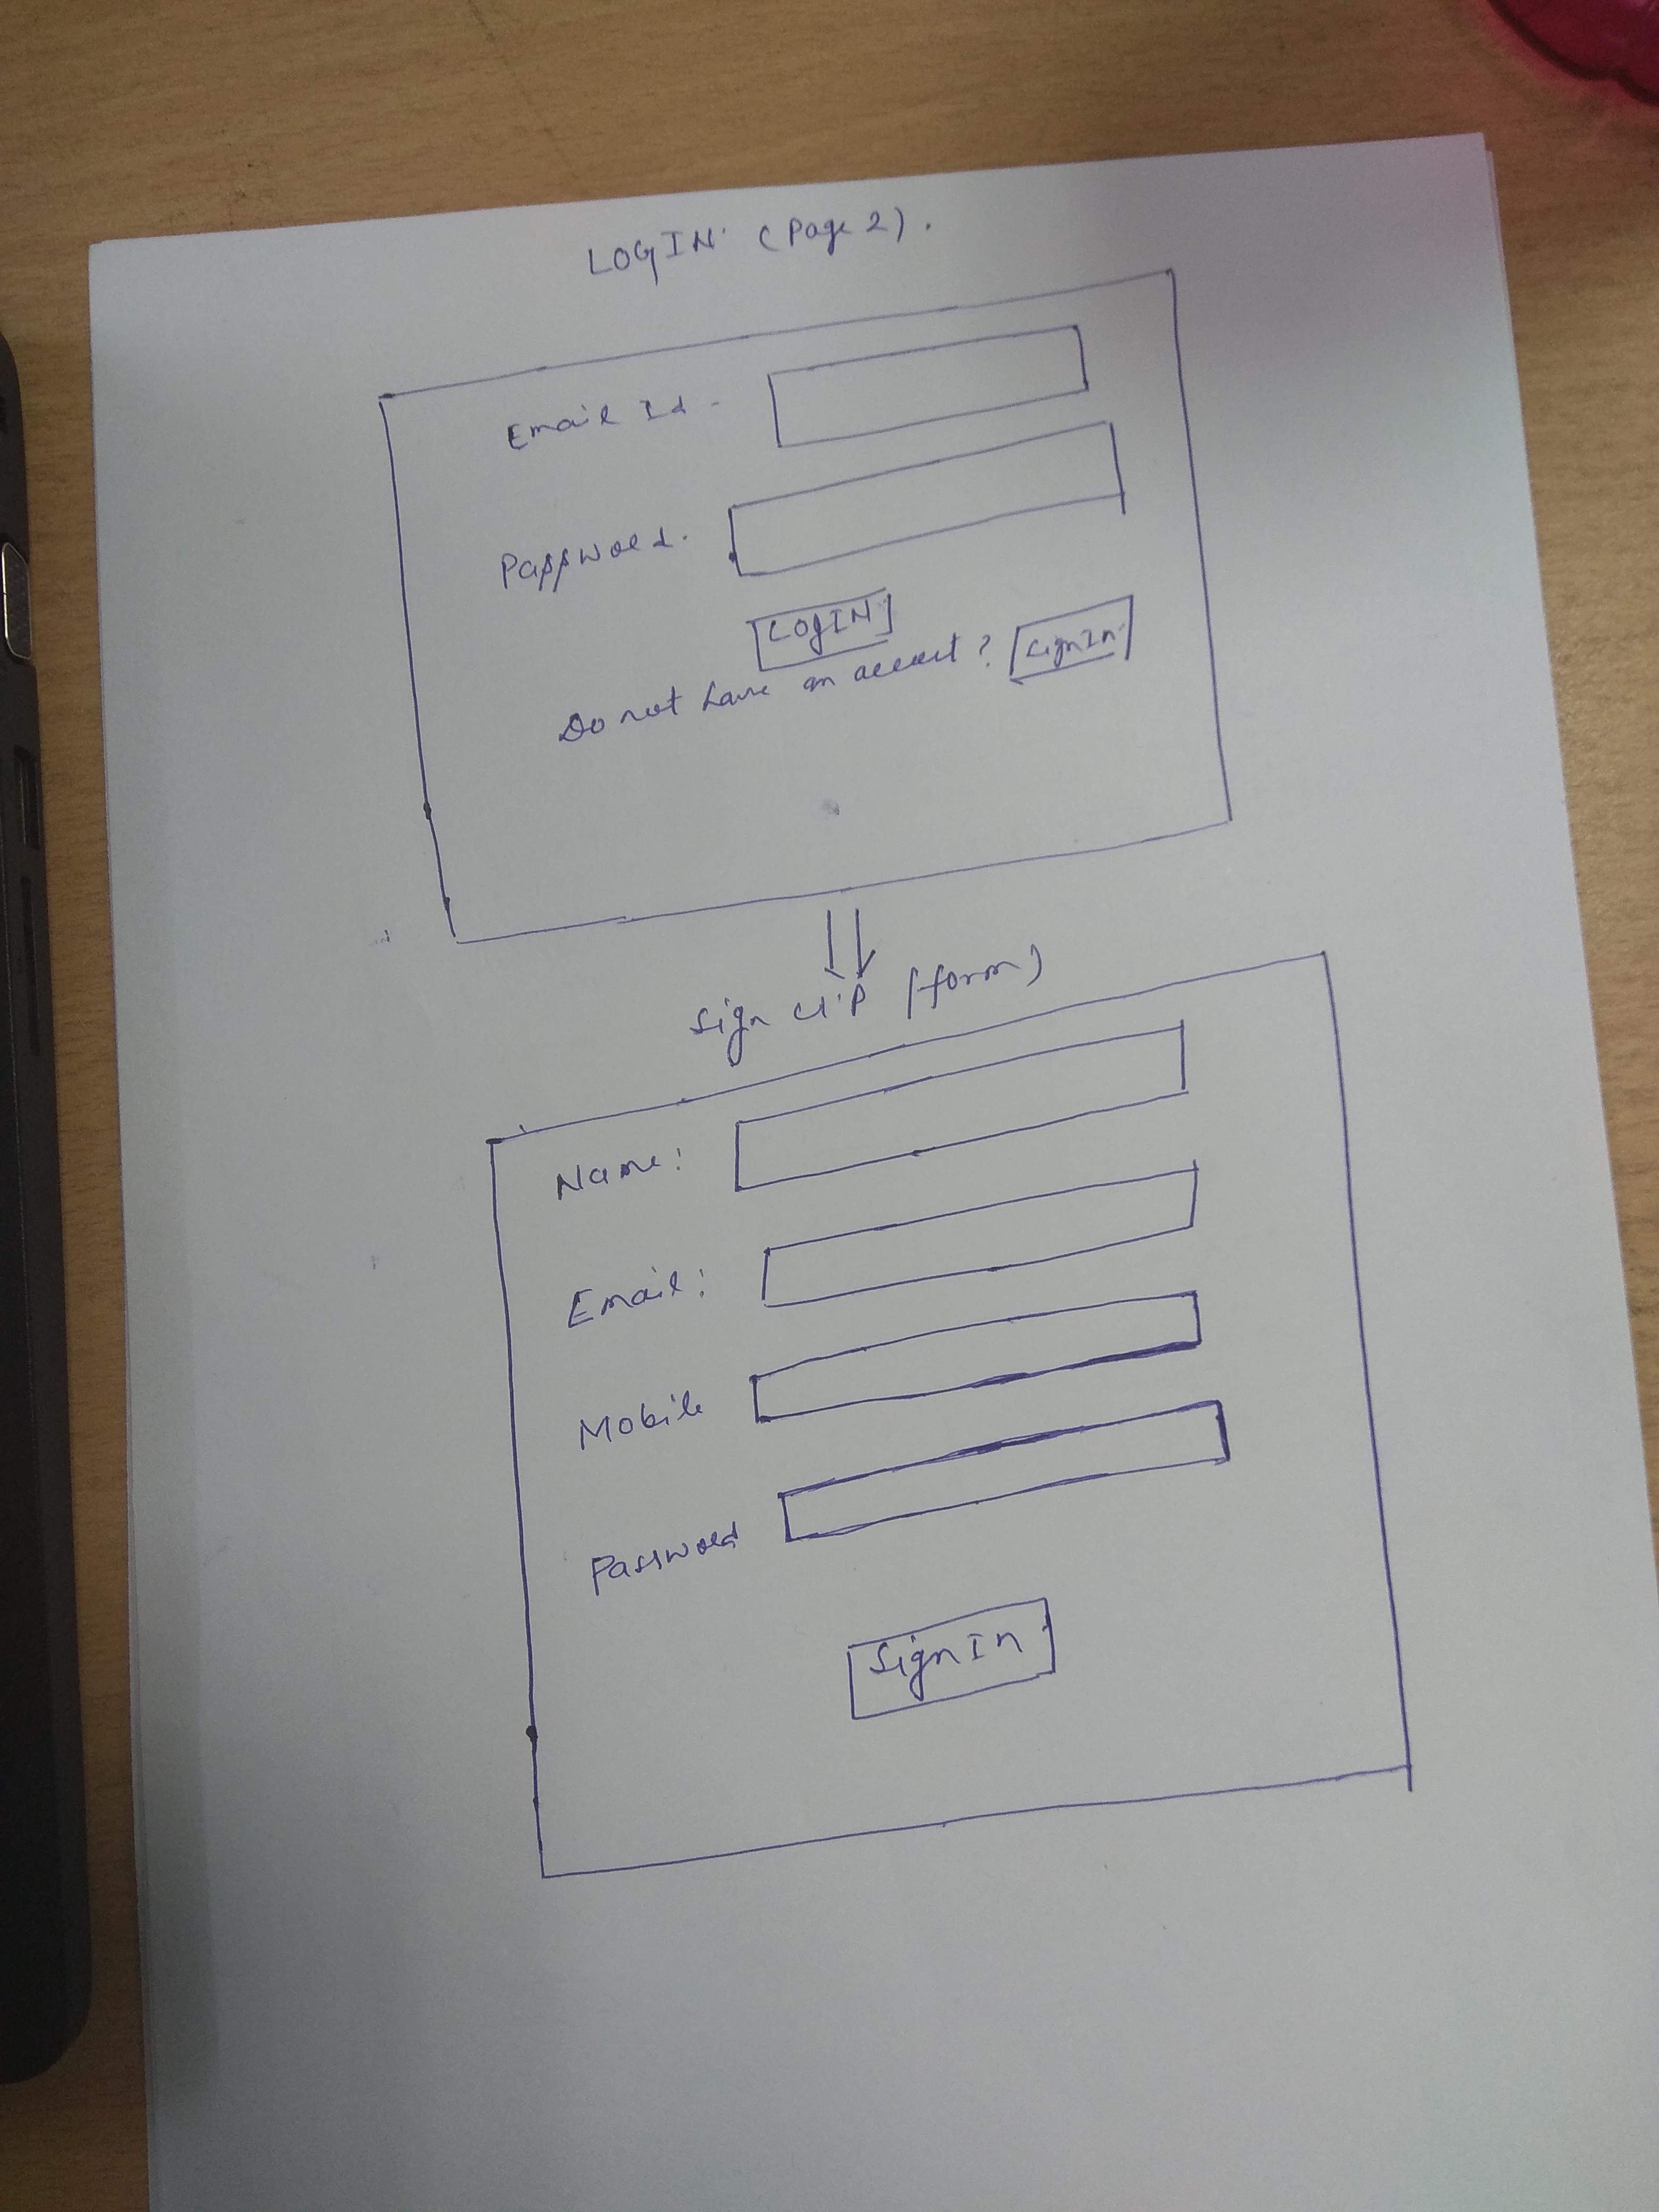 LOGIN (Page 2).
Email Id -
Password.
LOGIN
Do not have an account? SignIn
Sign UP (form)
Name:
Email:
Mobile
Password
Sign In